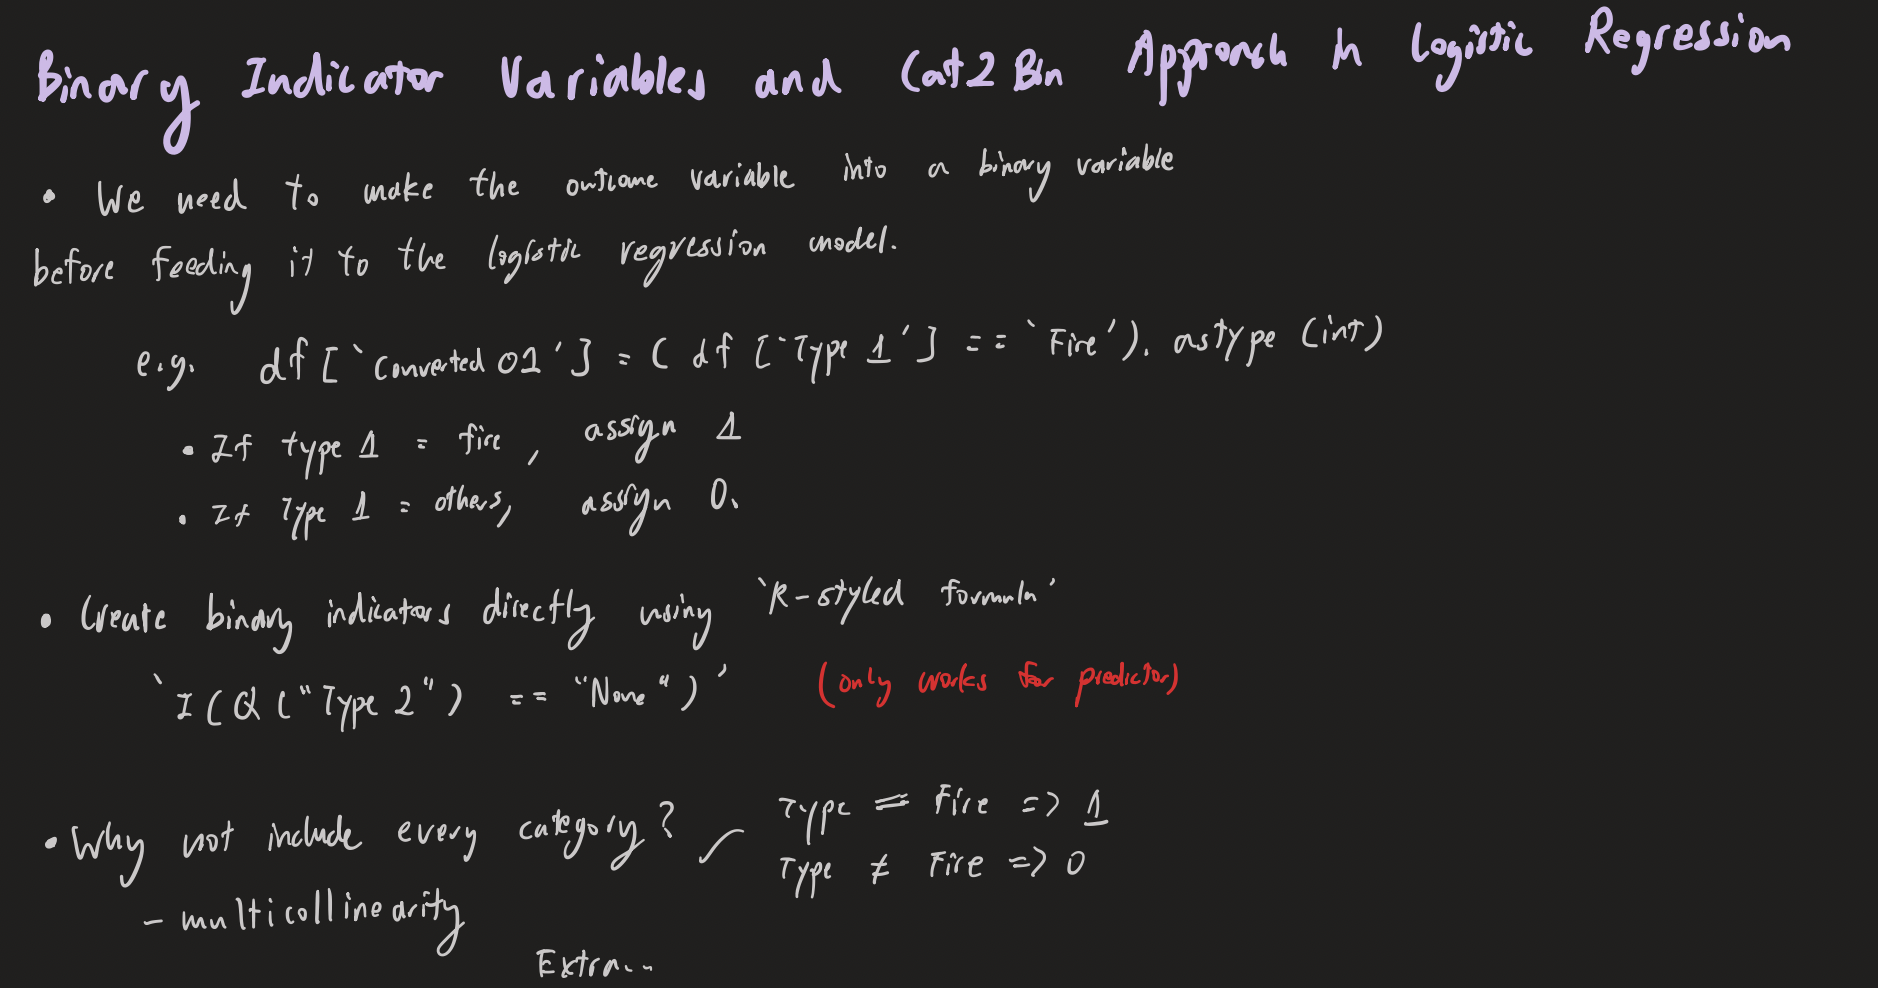 Binary Indicator Variables and Cat2Bin Approach in Logistic Regression
• We need to make the outcome variable into a binary variable
before feeding it to the logistic regression model.
e.g. df[`Converted 01'] = (df[`Type 1'] == `Fire').astype(int)
• If type 1 = fire, assign 1
• If Type 1 = others, assign 0.
• Create binary indicators directly using `R-styled formula'
`I(Q("Type 2") == "None")' (only works for predictor)
• Why not include every category? Type = Fire => 1
Type ≠ Fire => 0
- multicollinearity
Extra...